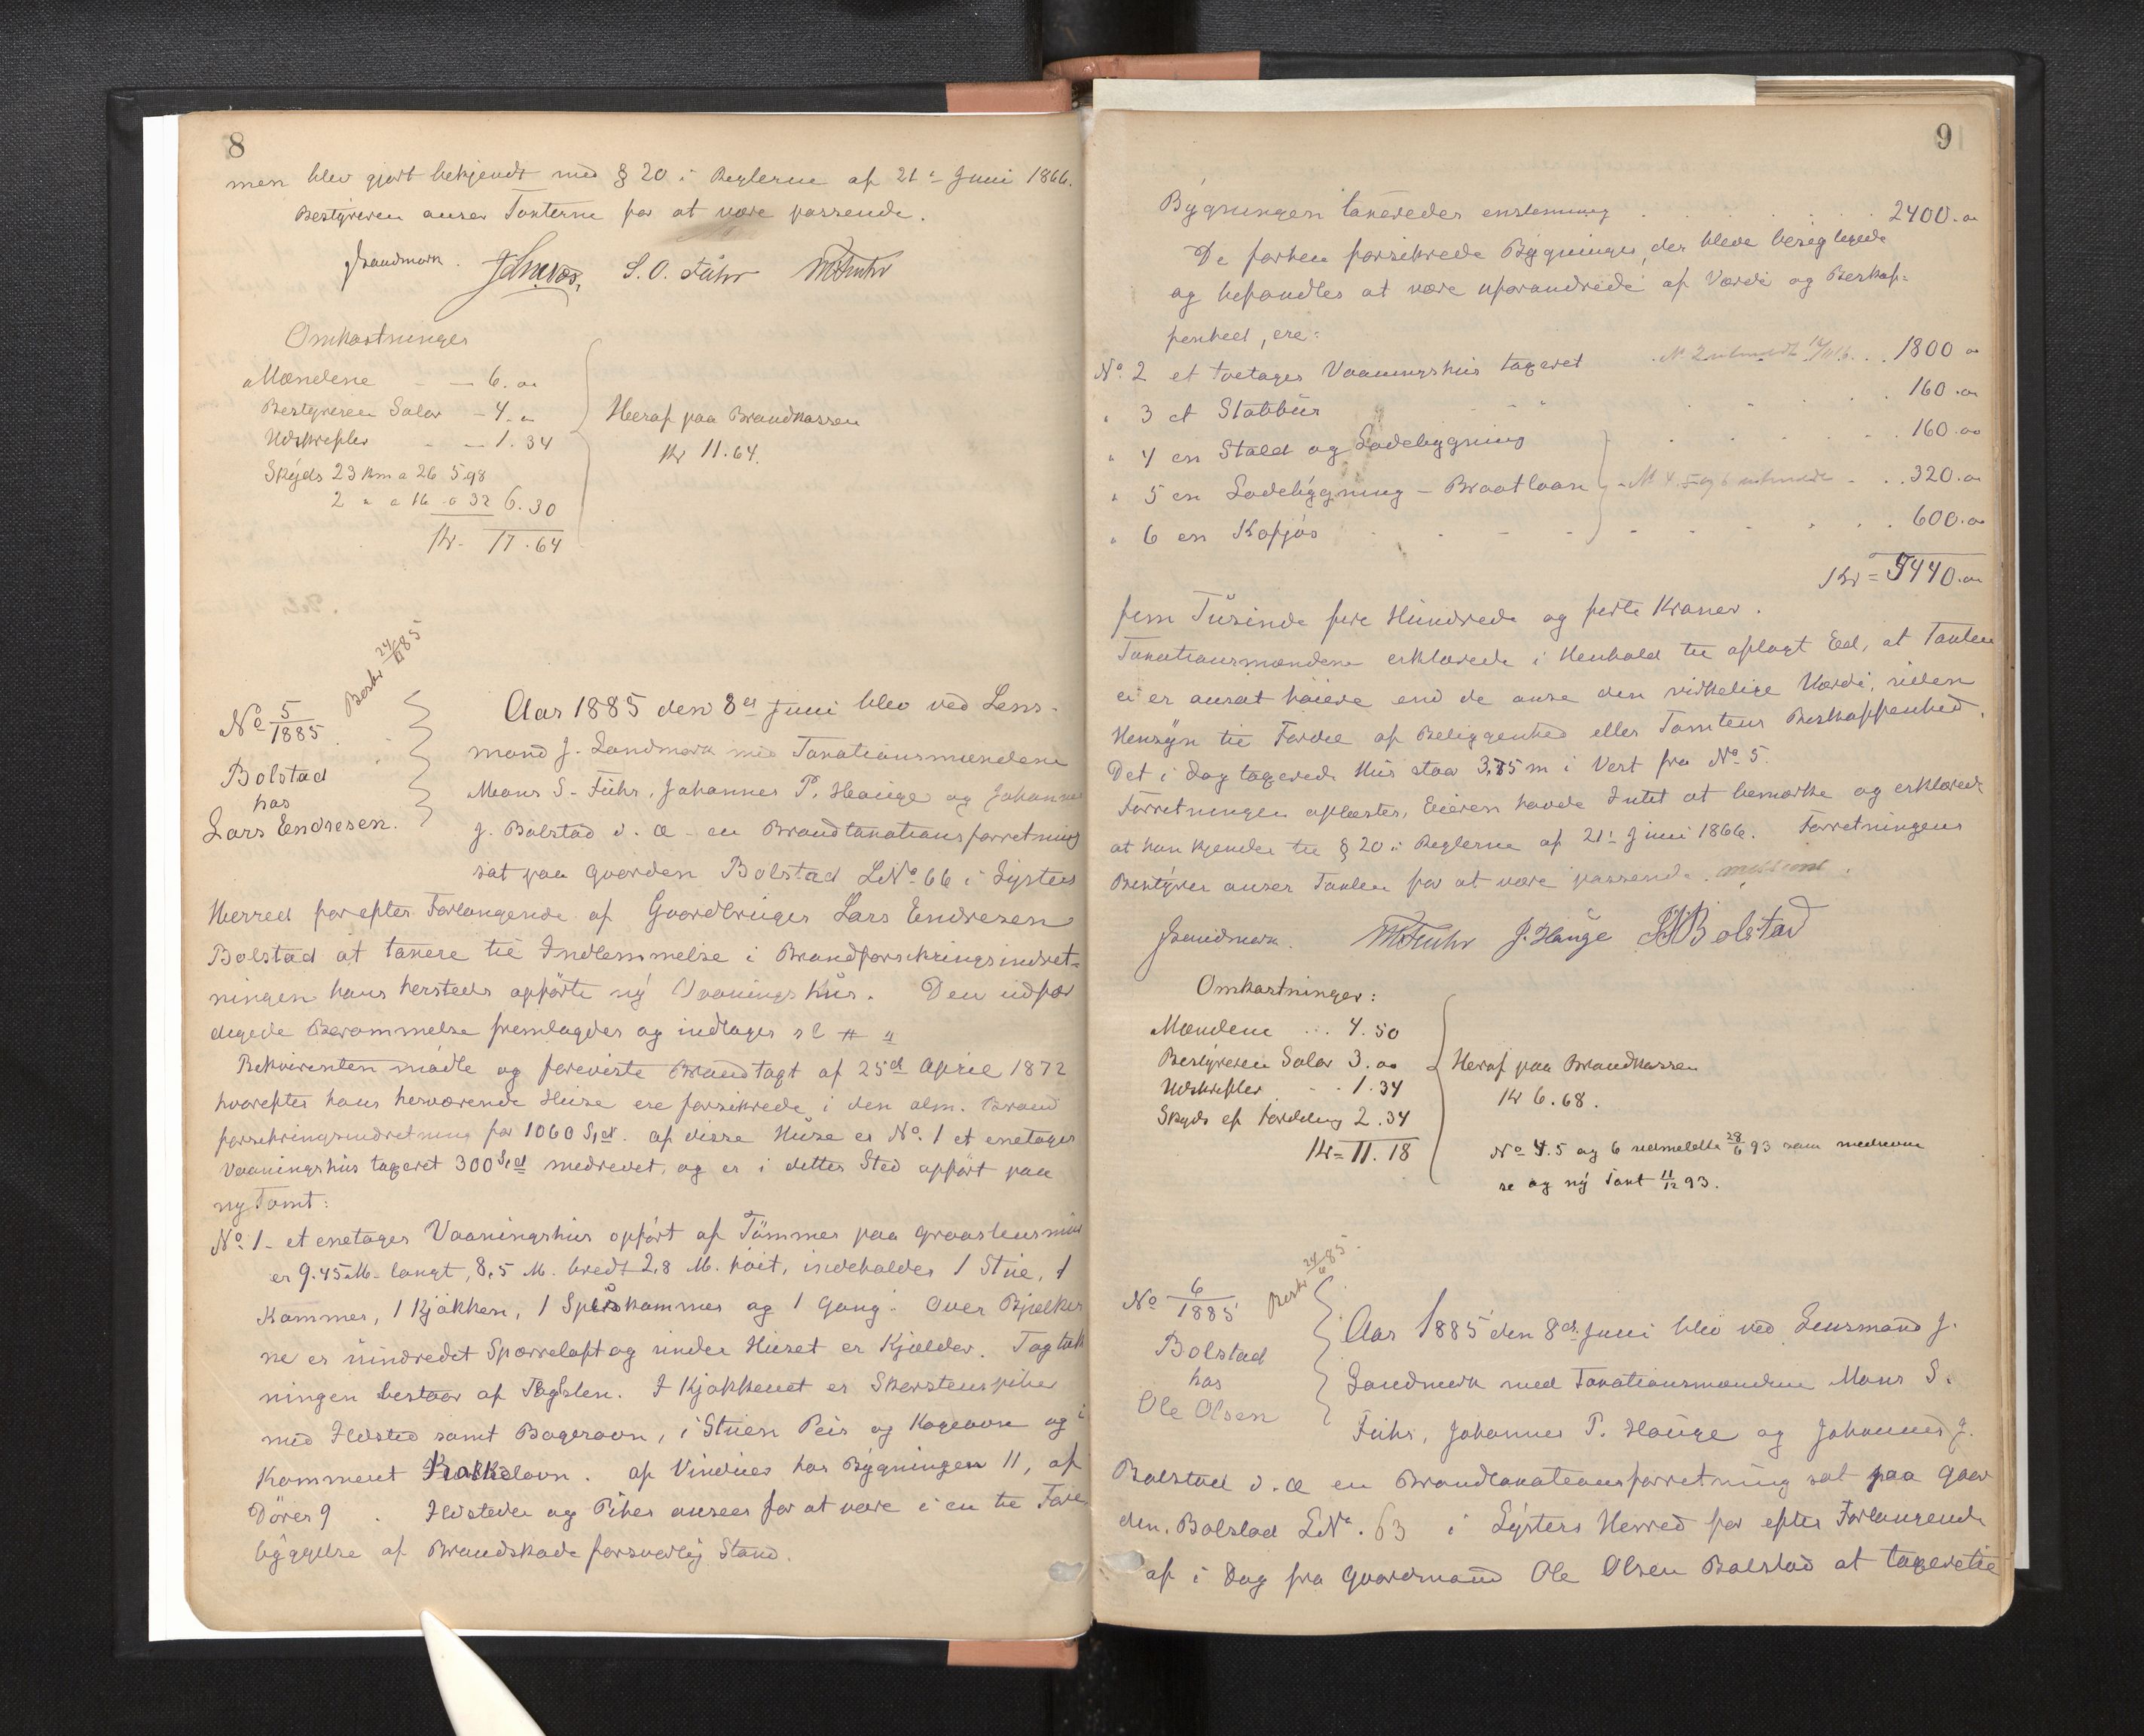 8
men blev gjort bekjendt med § 20 i Reglerne af 21de Juni 1866.
Bestyreren anser Taxterne for at være passende.
JLandmark. S. O. Fuhr MSFuhr
Omkostninger
Mændene — — 6. 00
Bestyreren Salær — 4. "
Udskrifter — 1. 34
Skyds 23 Km a 26 5.98
2 " a 16 0 32 6.30
Kr. 17.64
Heraf paa Brandkassen
Kr 11.64.
No 5/1885
Beskr 24/11 85
Bolstad
hos
Lars Endresen.
Aar 1885 den 8de Juni blev ved Lens-
mand J. Landmark med Taxationsmændene
Mons S. Fuhr, Johannes P. Hauge og Johannes
J. Bolstad d. æ. en Brandtaxationsforretning
sat paa Gaarden Bolstad LNo. 66 i Lysters
Herred for efter Forlangende af Gaardbruger Lars Endresen
Bolstad at taxere til Indlemmelse i Brandforsikringsindret-
ningen hans hersteds opførte ny Vaaningshus. Den udfær
digede Berammelse fremlagdes og indtages sl # "
Rekvirenten mødte og foreviste Brandtaxt af 25de April 1872
hvorefter hans herværende Huse ere forsikrede i den alm. Brand
forsikringsindretning for 1060 Spd. af disse Huse er No. 1 et enetages
Vaaningshus taxeret 300 Spd nedrevet, og er i dettes Sted opført paa
ny Tomt:
No. 1 - et enetages Vaaningshus opført af Tømmer paa Graastensmur
er 9.45 M. langt, 8,5 M. bredt 2,8 M. høit, indeholder 1 Stue, 1
Kammer, 1 Kjøkken, 1 Spiskammer og 1 Gang. Over Bjelker
ne er uindredet Sperreloft og under Huset er Kjelder. Tagtæk
ningen bestaar af Tagsten. I Kjøkkenet er Skorstenspibe
med Ildsted samt Bagerovn, i Stuen Peis og Kogeovn og i
Kammeret Kakkelovn. af Vinduer har Bygningen 11, af
Døres 9. Ildsteder og Piber ansees for at være i en til Fore
byggelse af Brandskade forsvarlig Stand.
9
Bygningen taxeredes enstemmig . . . 2400. 00
De forhen forsikrede Bygninger, der bleve besigtigede
og befandtes at være uforandrede af Værdi og Beskaf-
fenhed, ere:
No. 2 et toetages Vaaningshus taxeret . . 1800 00
" 3 et Stabbur . . 160. 00
" 4 en Stald og Ladebygning . . 160. 00
" 5 en Ladebygning - Braatloan - No 4. 5 og 6 udmeldte . . 320. 00
" 6 en Kofjøs . . 600. 00
Kr = 5440. 00
fem Tusinde fire Hundrede og førti Kroner.
Taxationsmændene erklærede i Henhold til aflagt Ed, at Taxten
ei er ansat høiere end de anse den virkelige Værdi, uden
Hensyn til Fordel af Beliggenhed eller Tomtens Beskaffenhed.
Det i Dag taxerede Hus staar 3,75 m i Vest fra No. 5.
Forretningen oplæstes, Eieren havde Intet at bemærke og erklærede
at han kjender til § 20 i Reglerne af 21de Juni 1866. Forretningens
Bestyrer anser Taxten for at være passende.
JLandmark. MSFuhr J. Hauge JJBolstad
Omkostninger:
Mændene ... 4. 50
Bestyreren Salær 3. 00
Udskrifter . . 1. 34
Skyds ef fordeling 2. 34
Kr = 11. 18
Heraf paa Brandkassen
Kr 6. 68.
No 4. 5 og 6 udmeldte 28/6 93 som nedrevne
se og ny Taxt 11/12 93.
No 6/1885
Beskr 24/11 85.
Bolstad
hos
Ole Olsen
Aar 1885 den 8de Juni blev ved Lensmand J.
Landmark med Taxationsmændene Mons S.
Fuhr, Johannes P. Hauge og Johannes J.
Bolstad d. æ en Brandtaxationsforretning sat paa Gaar
den Bolstad LNo. 63 i Lysters Herred for efter Forlangende
af i Dag fra Gaardmand Ole Olsen Bolstad at taxere til